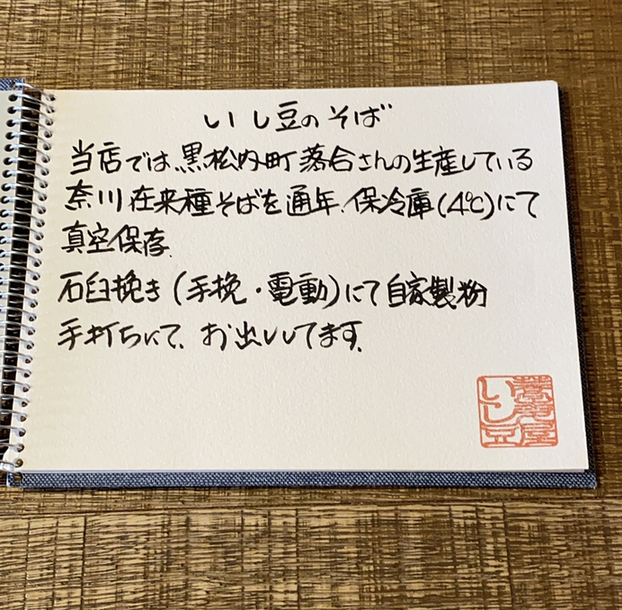 いし豆のそば
当店では、黒松内町落合さんの生産している
奈川在来種そばを通年、保冷庫(4℃)にて
真空保存。
石臼挽き(手挽・電動)にて自家製粉
手打ちにて、お出ししてます。
いし豆
蕎麦屋